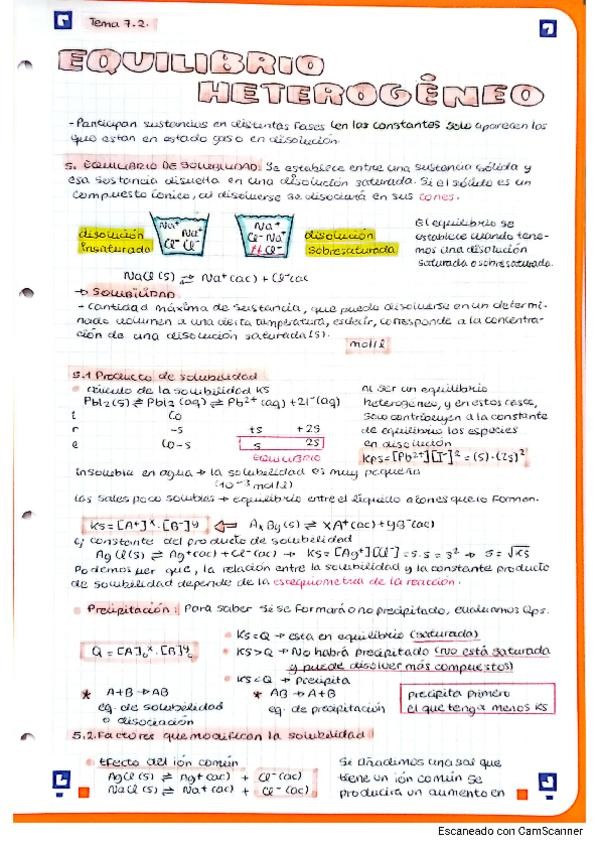 Tema 7.2.
EQUILIBRIO
HETEROGÉNEO
-Participan sustancias en distintas fases (en las constantes solo aparecen los
que estan en estado gas o en disolución.
5. EQUILIBRIO DE SOLUBILIDAD: Se establece entre una sustancia sólida y
esa sustancia disuelta en una disolución saturada. Si el sólido es un
compuesto iónico, al disolverse se disociará en sus iones.
disolución
insaturada
Na+ Na+
Cl- Cl-
Na+
Cl- Na+
Cl-
disolución
sobresaturada
El equilibrio se
establece cuando tene-
mos una disolución
saturada o sobresaturada.
NaCl (s) ⇌ Na+ (ac) + Cl- (ac
→ SOLUBILIDAD
- Cantidad máxima de sustancia, que puede disolverse en un determi-
nado volumen a una cierta temperatura, es decir, corresponde a la concentra-
ción de una disolución saturada (s).
mol/l
5.1 Producto de solubilidad
• cálculo de la solubilidad KS
PbI2 (s) ⇌ PbI2 (aq) ⇌ Pb2+ (aq) + 2I- (aq)
i Co
r -s +s +2s
e Co-s s 2s
EQUILIBRIO
Al ser un equilibrio
heterogéneo, y en estos casos,
solo contribuyen a la constante
de equilibrio las especies
en disolución
Kps = [Pb2+][I-]2 = (s)·(2s)2
insoluble en agua → la solubilidad es muy pequeña
(10-3 mol/l)
las sales poco solubles → equilibrio entre el líquido a iones que lo forman.
KS = [A+]x · [B-]y ⇐ AxBy (s) ⇌ xA+ (ac) + yB- (ac)
ej constante del producto de solubilidad
AgCl (s) ⇌ Ag+ (ac) + Cl- (ac) → KS = [Ag+][Cl-] = s·s = s2 → s = √KS
Podemos ver que, la relación entre la solubilidad y la constante producto
de solubilidad depende de la estequiometría de la reacción.
• Precipitación: Para saber si se formará o no precipitado, evaluamos Qps.
Q = [A]ox · [B]yo
• KS = Q → esta en equilibrio (saturada)
• KS > Q → No habrá precipitado (no está saturada
y puede disolver más compuestos)
• KS < Q → Precipita
* A+B → AB
eq. de solubilidad
o disociación
* AB → A+B
eq. de precipitación
precipita primero
el que tenga menos KS
5.2. Factores que modifican la solubilidad
• Efecto del ión común
AgCl (s) ⇌ Ag+ (ac) + Cl- (ac)
NaCl (s) ⇌ Na+ (ac) + Cl- (ac)
Si añadimos una sal que
tiene un ión común se
producirá un aumento en
Escaneado con CamScanner